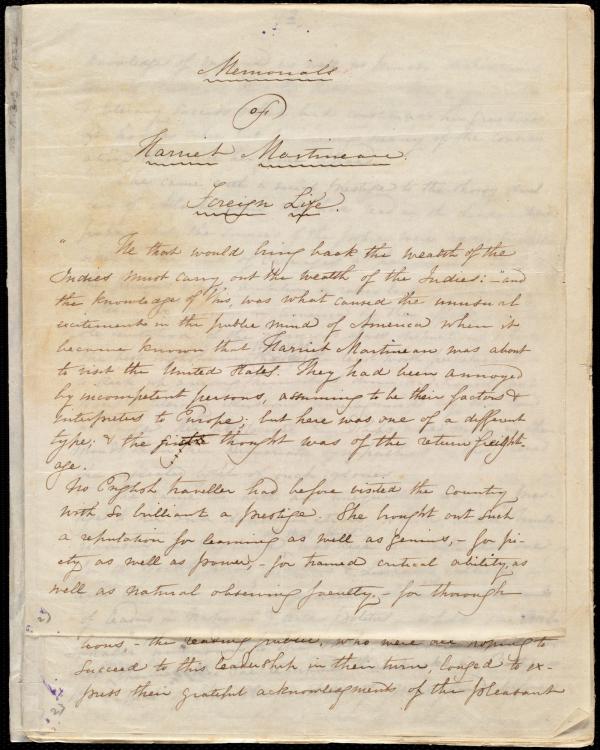 Memorials
of
Harriet Martineau.
Foreign Life.
" He that would bring back the wealth of the
Indies must carry out the wealth of the Indies:" - and
the knowledge of this, was what caused the unusual
excitement in the public mind of America when it
became known that Harriet Martineau was about
to visit the United States. They had been annoyed
by incompetent persons, assuming to be their factors &
interpreters to Europe; but here was one of a different
type; & the thought was of the return freight-
age.
No English traveller had before visited the country
with so brilliant a prestige. She brought out such
a reputation for learning as well as genius, - for pi-
ety as well as power, - for trained critical ability, as
well as natural observing faculty, - for thorough
tions, - the leading public, who were all hoping to
succeed to this leadership in their turn, longed to ex-
press their grateful acknowledgments of the pleasant